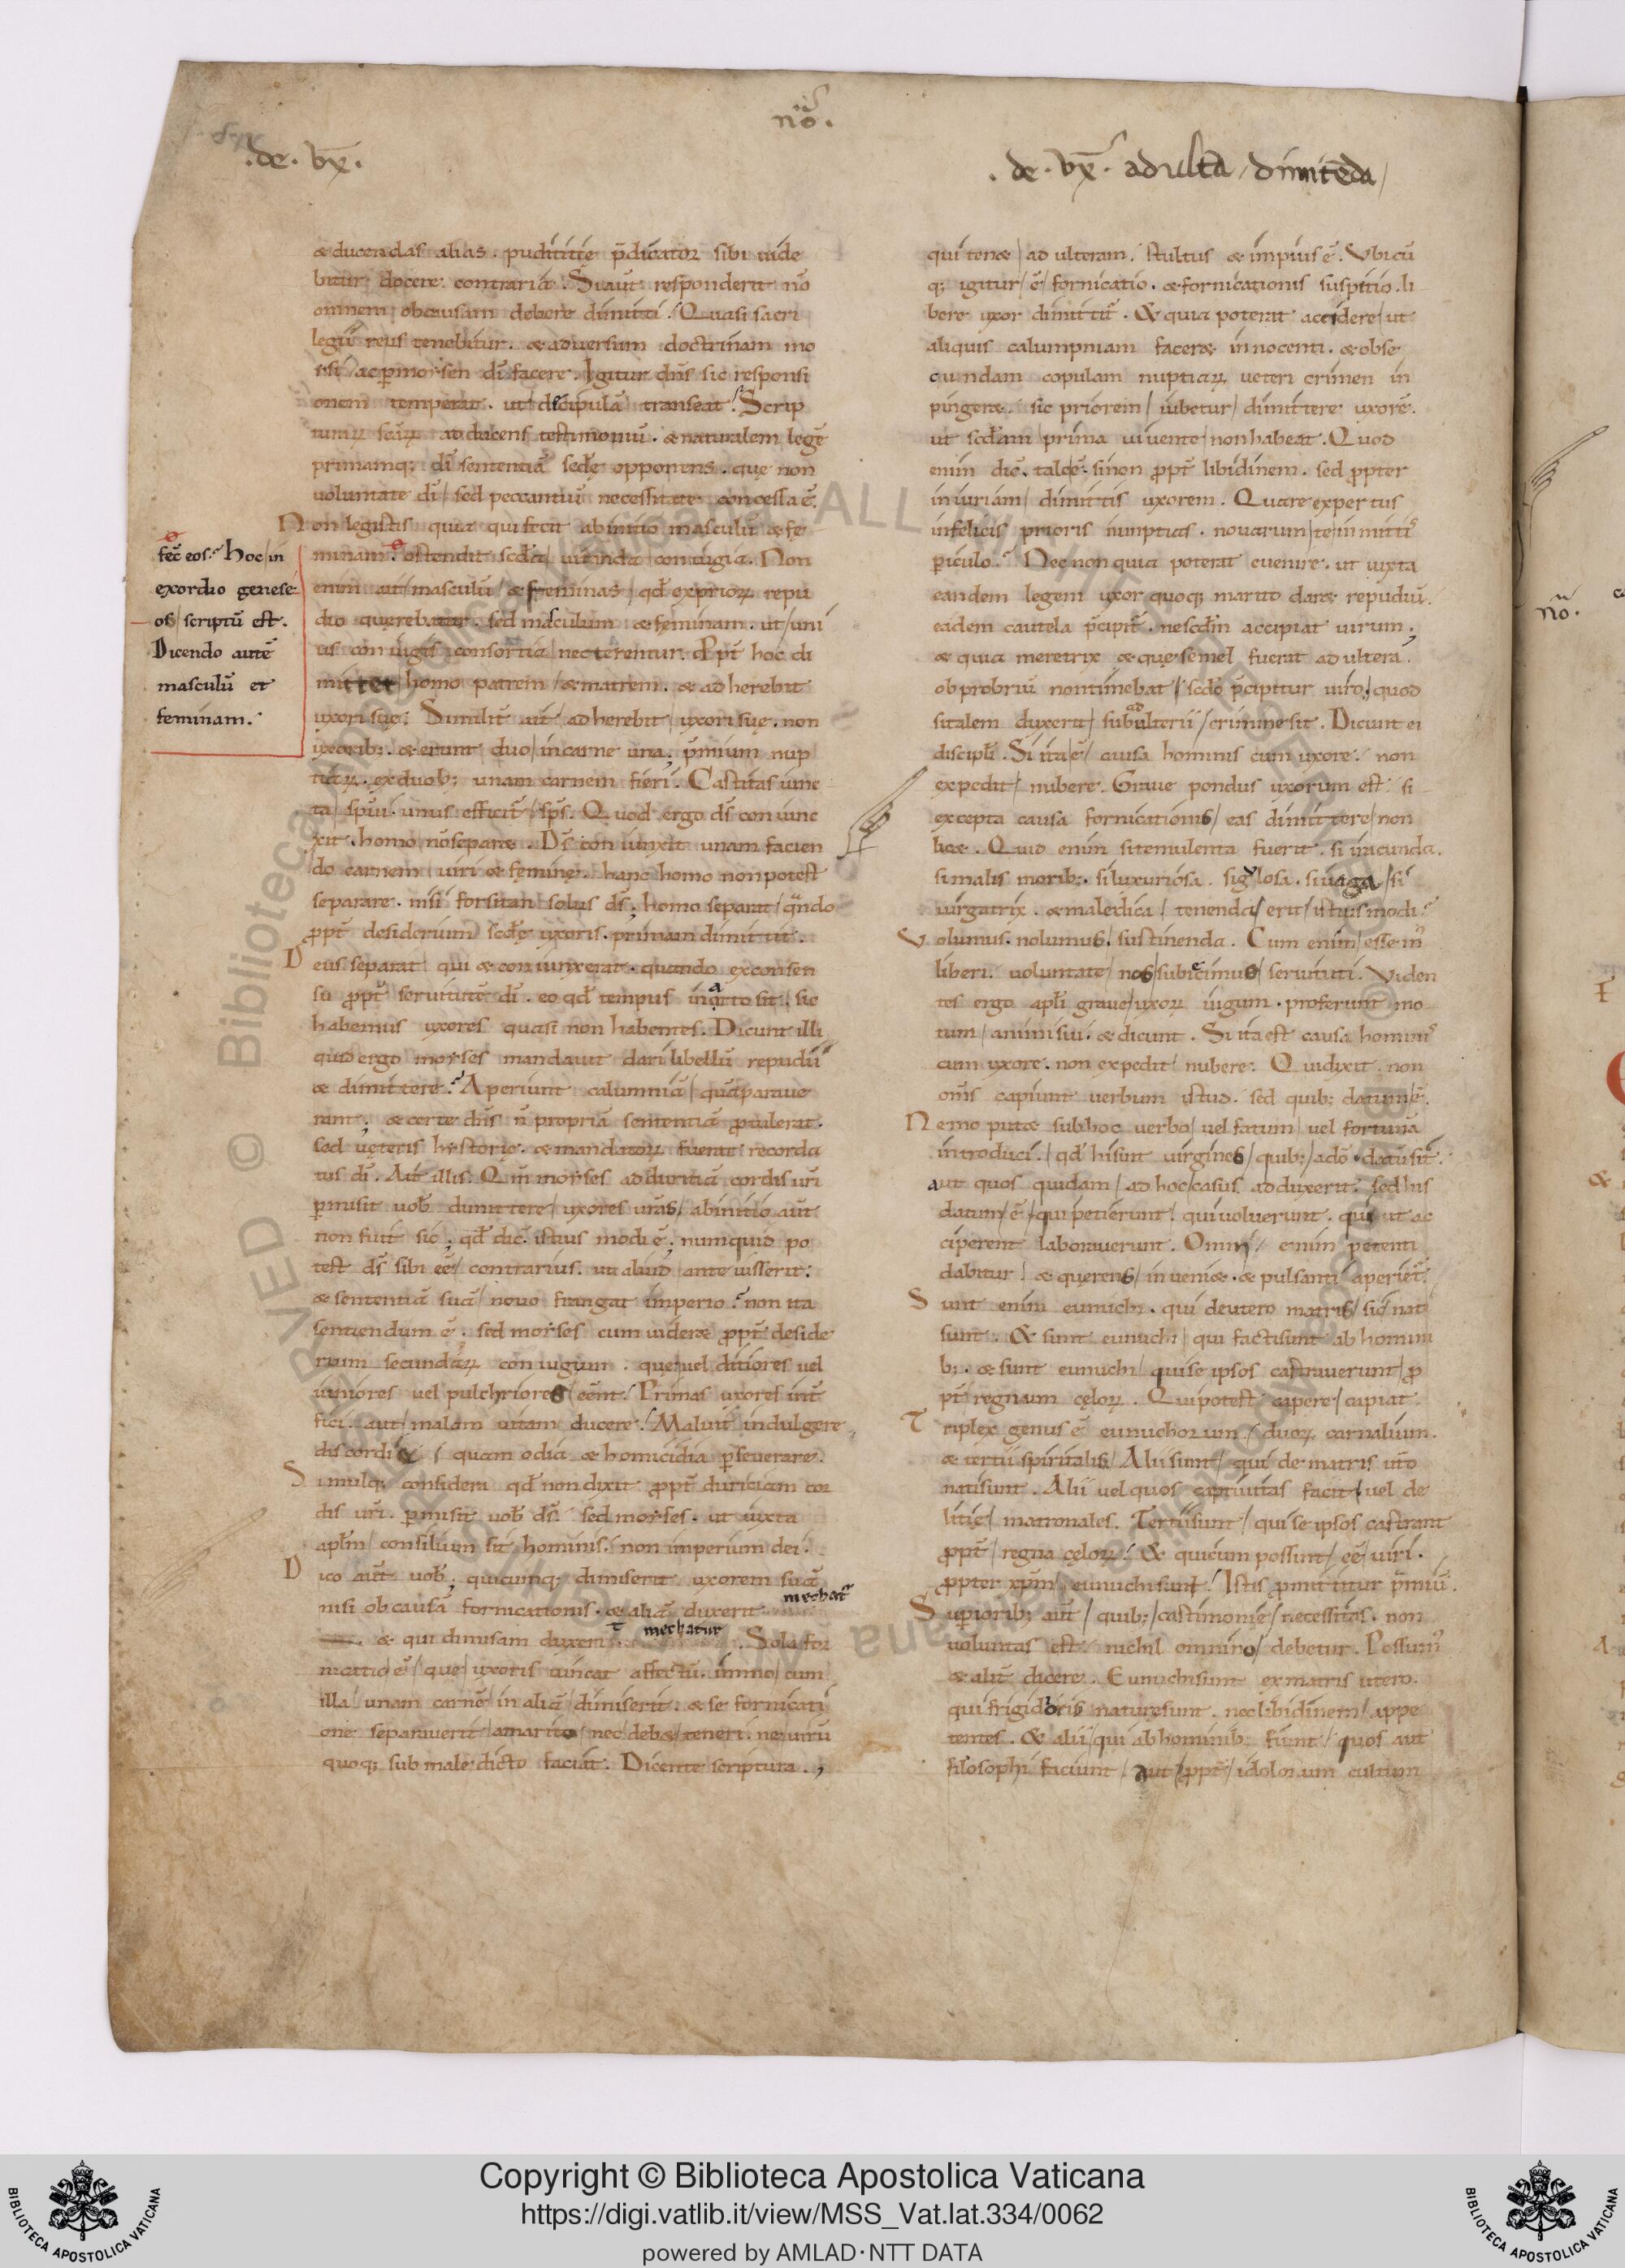 nō.
.de. vx̄.
& ducendas alias. pudititię p̄dicator sibi uide
bitur docere contraria. Si aūt responderit nō
omnem ob causam debere dimitti. Quasi sacri
legii reus tenebitur. & aduersum doctrinam mo
ysi ac p moysen dī facere. Igitur dn̄s sic responsi
onem temperat. ut decipulā transeat. Scrip
turarū scārū adducens testimoniū. & naturalem legē
primamq; dī sententiā scdę opponens. quę non
uoluntate dī / sed peccantiū necessitate concessa ē.
Non legistis quia qui fecit ab initio masculū & fe
minam. ostendit scda uitanda coniugia. Non
enim ait masculū / & feminas / qd̄ ex priorū repu
dio querebatur. sed masculum & feminam. ut / uni
us coniugis consortia necterentur. Ppt̄ hoc di
mittet homo patrem / & matrem. & adherebit
uxori suę. Similit̄ ait / adherebit / uxori suę. non
uxorib;. & erunt duo / in carne una, p̄mium nup
tiarū. ex duob; unam carnem fieri. Castitas iunc
ta / sp̄ui. unus efficit̄ / sp̄s. Quod ergo ds̄ coniunc
xit. homo nō separet. Ds̄ coniunxit unam facien
do carnem / uiri & feminę. hanc homo non potest
separare. nisi forsitan solus ds̄, homo separat / qn̄do
ppt̄ desiderium scdę uxoris. primam dimittit.
Deus separat / qui & coniunxerat. quando ex consen
su ppt̄ seruitutē dī. eo qd̄ tempus in arto sit. sic
habemus uxores quasi non habentes. Dicunt illi
quid ergo moyses mandauit dari libellū repudii
& dimittere? Aperiunt calumniā / quā paraue
rant, & certe dn̄s n̄ propriā sententiā protulerat.
sed ueteris hystorię. & mandatorū fuerat recorda
tus dī. Ait illis. Qm̄ moyses ad duritiā cordis uri
pmisit uob̄ dimittere / uxores uras / ab initio aūt
non fuit sic, qd̄ dic̄. istius modi ē, numquid po
test ds̄ sibi ēē / contrarius. ut aliud ante iusserit:
& sententiā suā / nouo frangat imperio? non ita
sentiendum ē. sed moyses cum uideret ppt̄ deside
rium secundarū coniugum. quę uel ditiores uel
iuniores uel pulchriores / eent. Primas uxores int̄
fici. aut / malam uitam ducere. Maluit indulgere
discordię / quam odia & homicidia pseuerare.
Simulq; considera qd̄ non dixit ppt̄ duriciam cor
dis uri. pmisit uob̄ ds̄. sed moyses. ut iuxta
apl̄m / consilium sit hominis. non imperium dei.
Dico aūt uob̄, quicumq; dimiserit uxorem suā
nisi ob causā fornicationis. & aliā duxerit mechat̄
& qui dimisam duxerit mechatur. Sola for
nicatio ē / que / uxoris uincat affectū. immo / cum
illa unam carnē in aliā diuiserit. & se fornicati
one separauerit / a marito / nec / debet / teneri. ne uirū
quoq; sub maledicto faciat. Dicente scriptura.,
fec̄ eos. Hoc / in
exordio genese
os / scriptū est.
Dicendo autē
masculū et
feminam.
.de. vx̄. adultā / dimitēda /
qui tenet / adulteram. stultus & impius ē. Vbicū
q; igitur / ē / fornicatio. & fornicationis suspitio. li
bere uxor dimittit̄. & quia poterat accidere / ut
aliquis calumpniam faceret innocenti. & ob se
cundam copulam nuptiarū ueteri crimen in
pingeret. sic priorem / iubetur / dimittere uxorē.
ut scdam / prima uiuente / non habeat. Quod
enim dic̄. tale ē. si non ppt̄ libidinem. sed ppter
iniuriam / dimittis uxorem. Quare expertus
infelicis prioris nunptias. nouarum / te / inmittis
piculo? Nec non quia poterat euenire. ut iuxta
eandem legem uxor quoq; marito daret repudiū.
eadem cautela p̄cipit̄. ne scdm̄ accipiat uirum,
& quia meretrix & quę semel fuerat adultera.
obprobriū non timebat / scdo p̄cipitur uiro / quod
si talem duxerit / sub adulterii / crimine sit. Dicunt ei
discipl̄i. Si ita ē / causa hominis cum uxore. non
expedit / nubere. Graue pondus uxorum est. si
excepta causa fornicationis / eas dimittere / non
licet. Quid enim si temulenta fuerit. si iracunda.
si malis morib;. si luxuriosa. si gulosa. si uaga / si
iurgatrix. & maledica / tenenda / erit / istius modi?
Volumus. nolumus. sustinenda. Cum enim / essem̄
liberi. uoluntate / nos / subiecimus / seruituti. Viden
tes ergo apl̄i graue / uxorū iugum. proferunt mo
tum / animi sui. & dicunt. Si ita est causa hominis
cum uxore. non expedit / nubere. Qui dixit. non
om̄s capiunt uerbum istud. sed quib; datum ē.
Nemo putet sub hoc uerbo / uel fatum / uel fortunā
introduci. / qd̄ hi sint uirgines / quib; / a dō datū sit.
aut quos quidam / ad hoc / casus adduxerit. sed his
datum / ē / qui petierunt. qui uoluerunt. qui ut ac
ciperent laborauerunt. Omni / enim petenti
dabitur. & querens / inueniet. & pulsanti aperiet̄.
Sunt enim eunuchi. qui de utero matris / sic nati
sunt. & sunt eunuchi / qui facti sunt ab homini
b;. & sunt eunuchi / qui se ipsos castrauerunt / p
pt̄ regnum cęlorū. Qui potest capere / capiat.
Triplex genus ē eunuchorum / duorū carnalium.
& tertii spiritalis. Alii sunt / qui de matris ut̄o
nati sunt. Alii uel quos captiuitas facit / uel de
litię / matronales. Tertii sunt / qui se ipsos castrant
ppt̄ / regna cęlorū. & qui cum possint / ēē / uiri.
ppter xp̄m / eunuchi sunt. Istis pmittitur p̄miū.
Supiorib; aūt / quib; / castimonię / necessitas. non
uoluntas est. nichil omnino / debetur. Possum̄
& alit̄ dicere. Eunuchi sunt ex matris utero.
qui frigidioris naturę sunt. nec libidinem / appe
tentes. & alii / qui ab hominib; fiunt / quos aut
filosophi faciunt / aut / ppt̄ / idolorum cultum
nō.
Copyright © Biblioteca Apostolica Vaticana
https://digi.vatlib.it/view/MSS_Vat.lat.334/0062
powered by AMLAD·NTT DATA
BIBLIOTECA APOSTOLICA VATICANA
BIBLIOTECA APOSTOLICA VATICANA